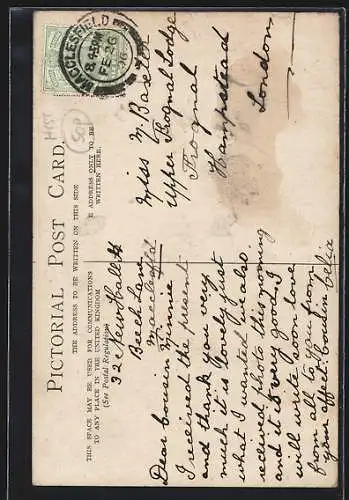 PICTORIAL POST CARD.
THE ADDRESS TO BE WRITTEN ON THIS SIDE
THIS SPACE MAY BE USED FOR COMMUNICATIONS
TO ANY PLACE IN THE UNITED KINGDOM
(See Postal Regulations)
E ADDRESS ONLY TO BE
WRITTEN HERE.
MACCLESFIELD
8.45PM
FE 26
50p
32 Newhall St
Beech Lane
Macclesfield
Dear Cousin Minnie
I received the present
and thank you very
much it is lovely just
what I wanted we also
received photo this morning
and it is very good, I
will write soon love
from all to you from
your affect. Cousin Celia
Miss M. Basett
Upper Frognal Lodge
Frognal
Hampstead
London